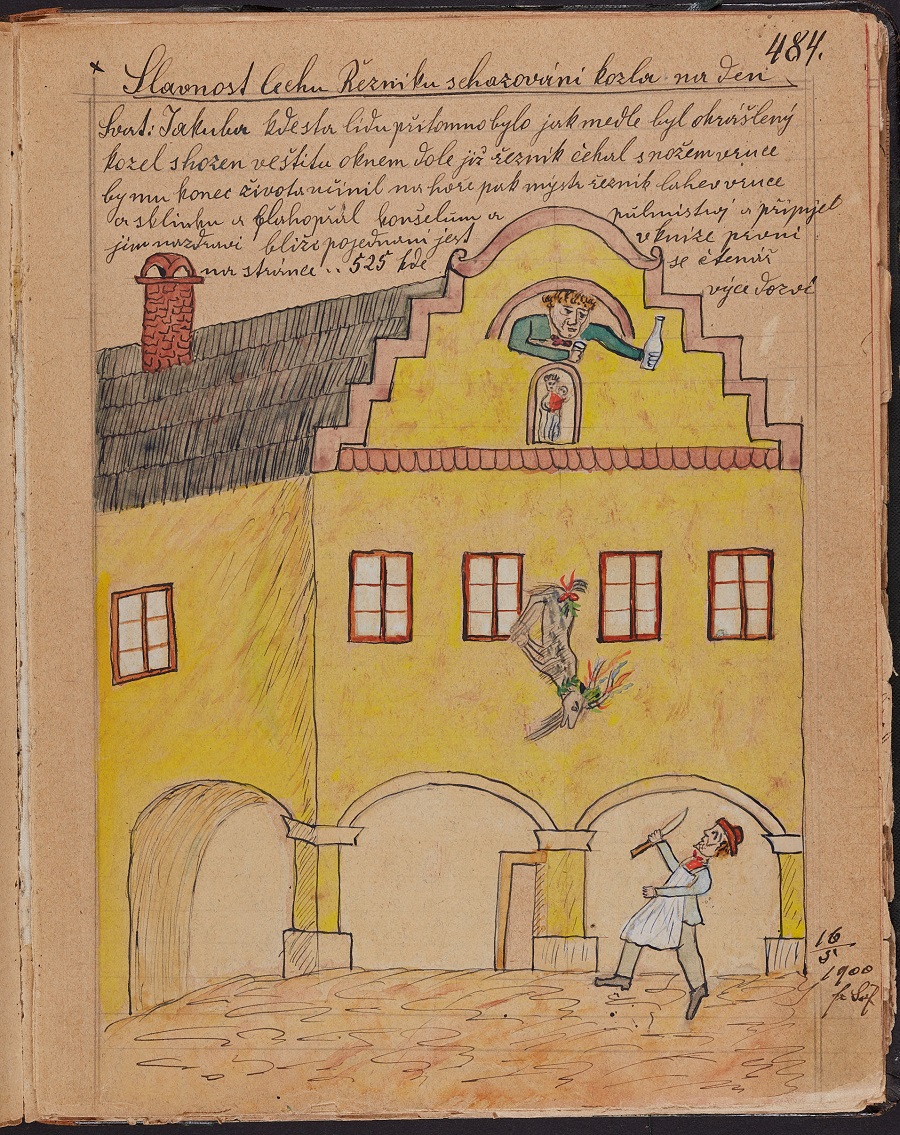 484.
× Slavnost Cechu Řezniku schazováni kozla na den
Svat: Jakuba kdesta lidu přitomno bylo jak medle byl okrášlený
kozel shozen ve štitu oknem dole již řeznik čekal s nožem vruce
by mu konec života učinil na hoře pak mystr řeznik lahev vruce
a sklinku a blahopřál konšelům a půlmistrŭ a připijel
jim na zdravi bliže pojednani jest v knize prvni
na strance .. 525 kde se čtenář
vyce dozví
16/5
1900